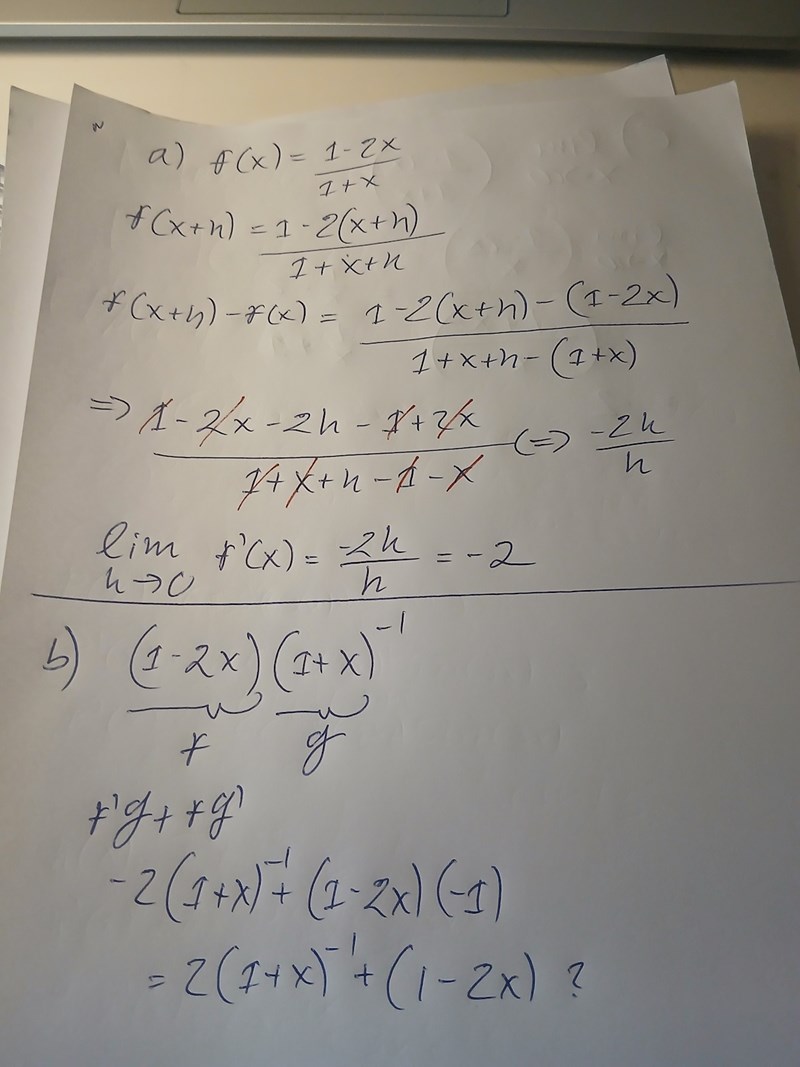 a) f(x) = (1-2x)/(1+x)
f(x+h) = (1-2(x+h))/(1+x+h)
f(x+h)-f(x) = (1-2(x+h)-(1-2x))/(1+x+h-(1+x))
=> (1-2x-2h-1+2x)/(1+x+h-1-x) (=> -2h/h
lim h→0 f'(x) = -2h/h = -2
b) (1-2x)(1+x)^-1
f g
f'g+fg'
-2(1+x)^-1+(1-2x)(-1)
=2(1+x)^-1+(1-2x) ?